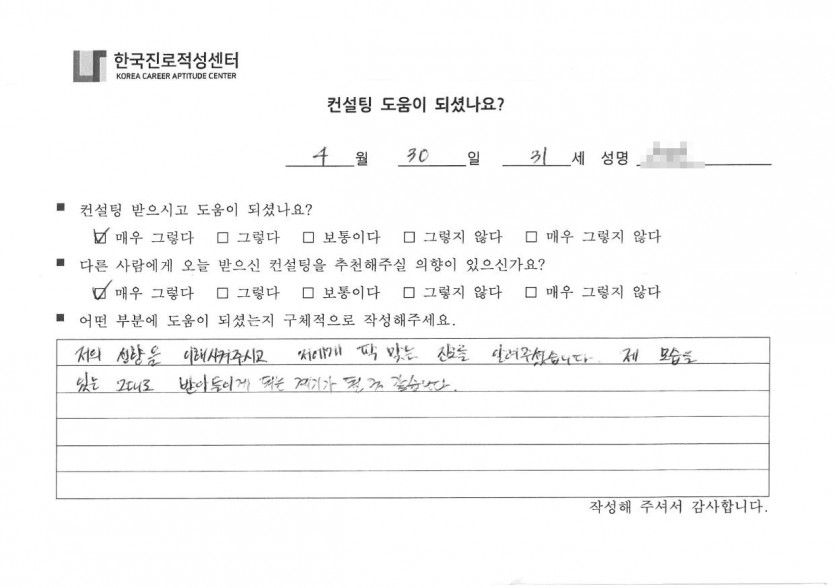 한국진로적성센터
KOREA CAREER APTITUDE CENTER
컨설팅 도움이 되셨나요?
4 월 30 일 31 세 성명
■ 컨설팅 받으시고 도움이 되셨나요?
☑ 매우 그렇다 □ 그렇다 □ 보통이다 □ 그렇지 않다 □ 매우 그렇지 않다
■ 다른 사람에게 오늘 받으신 컨설팅을 추천해주실 의향이 있으신가요?
☑ 매우 그렇다 □ 그렇다 □ 보통이다 □ 그렇지 않다 □ 매우 그렇지 않다
■ 어떤 부분에 도움이 되셨는지 구체적으로 작성해주세요.
저의 성향을 이해시켜주시고 저에게 딱 맞는 진로를 알려주셨습니다. 제 모습을
있는 그대로 받아들이게 되는 계기가 된 것 같습니다.
작성해 주셔서 감사합니다.